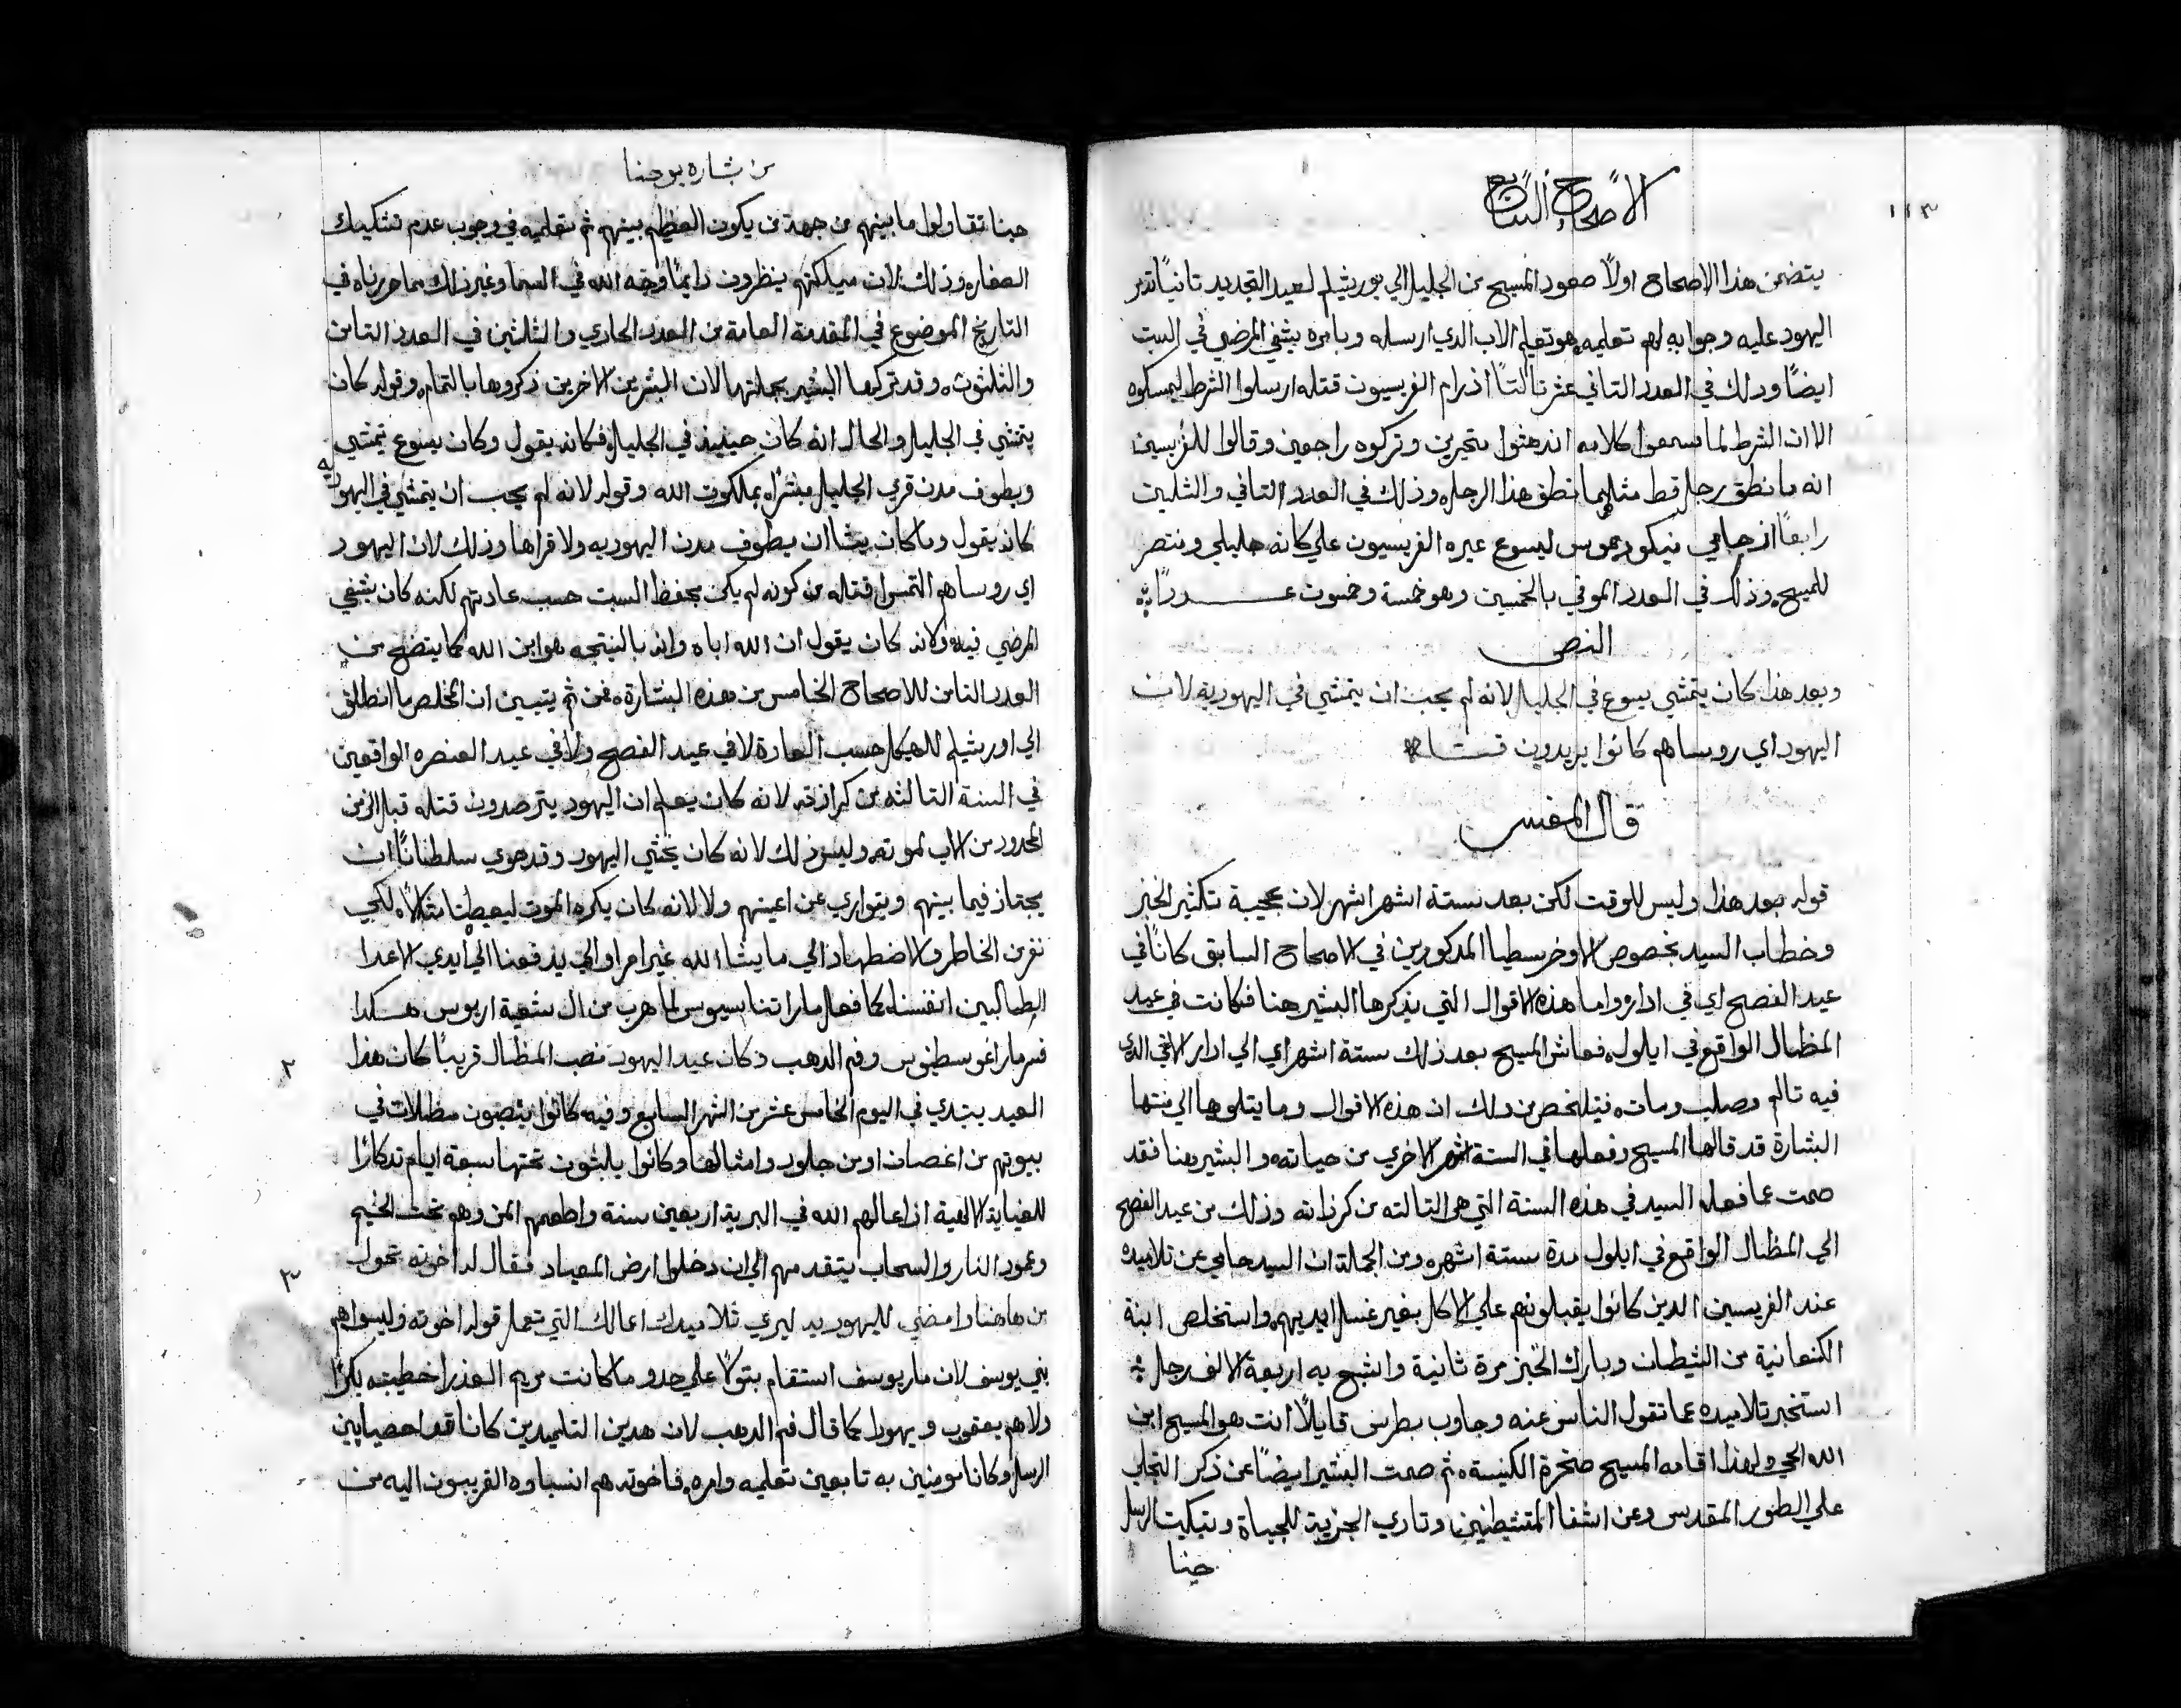 ١١٣
الاصحاح السابع
يتضمن هذا الاصحاح اولاً صعود المسيح من الجليل الي يوريشليم لعيد التجديد تانياً تدمر
اليهود عليه وجوابه لهم تعليمه هو تعليم الاب الدي ارسله وبامره يشفي المرضي في السبت
ايضاً ودلك في العدد التاني عشر تالتاً اذ رام الفريسيون قتله ارسلوا الشرط ليمسكوه
الا ان الشرط لما سمعوا كلامه اندهشوا متحيرين وتركوه راجعين وقالوا للفريسين
انه ما نطق رجل قط مثلما نطق هذا الرجل وذلك في العدد التاني والثلتين
رابعاً اذ حامي نيكوديموس ليسوع عيره الفريسيون علي كانه جليلي ومنتصر
للمسيح وذلك في العدد الموفي بالخمسين وهو خمسة وخمسون عـــدداً
النص
وبعد هذا كان يتمشي يسوع في الجليل لانه لم يحب ان يتمشي في اليهودية لان
اليهود اي روساهم كانوا يريدون قتله
قال المفسر
قوله بعد هذا وليس للوقت لكن بعد ستة اشهر اشهر لان عجيبة تكثير الخبز
وخطاب السيد بخصوص الاوخرسطيا المدكورين في الاصحاح السابق كانا في
عيد الفصح اي في ادار واما هذه الاقوال التي يذكرها البشير هنا فكانت في عيد
المظال الواقع في ايلول فعاش المسيح بعد ذلك ستة اشهر اي الي ادار الاتي الدي
فيه تالم وصلب ومات فيتلخص من دلك ان هذه الاقوال وما يتلوها الي منتها
البشارة قد قالها المسيح وفعلها في الستة اشهر الاخري من حياته والبشير هنا فقد
صمت عما فعله السيد في هذه السنة التي هي التالته من كرزاته وذلك من عيد الفصح
الي المظال الواقع في ايلول مدة ستة اشهر ومن الجملة ان السيد حامي عن تلاميده
عند الفريسين الدين كانوا يقبلونهم علي الاكل بغير غسل ايديهم واستخلص ابنة
الكنعانية من الشيطان وبارك الخبز مرة تانية واشبع به اربعة الاف رجل
استخبر تلاميده عما تقول الناس عنه وجاوب بطرس قايلاً انت هو المسيح ابن
الله الحي ولهذا اقامه المسيح صخرة الكنيسة ثم صمت البشير ايضاً عن ذكر التجلي
علي الطور المقدس وعن اشفا المتشيطنين وتادي الجزية للجباة وتبكيت الرسل
حينا
من بشاره يوحنا
حينا تقاولوا ما بينهم من جهة من يكون العظيم بينهم ثم تعليمه في وجوب عدم تشكيك
الصغار وذلك لان ميلكتهم ينظرون دايماً وجه الله في السما وغير ذلك مما حررناه في
التاريخ الموضوع في المقدمة العامة من العدد الحادي والثلثين في العدد التامن
والثلثون وقد تركها البشير بجملتها لان البشرين الاخرين ذكروها بالتمام وقوله كان
يتمشي في الجليل والحال انه كان حينيذ في الجليل فكانه يقول وكان يسوع يتمشي
ويطوف مدن قري الجليل مبشراً بملكوت الله وقوله لانه لم يحب ان يتمشي في اليهوديه
كانه يقول وما كان يشا ان يطوف مدن اليهوديه ولا قراها وذلك لان اليهود
اي روساهم التمسوا قتله من كونه لم يكن يحفظ السبت حسب عادتهم لكنه كان يشفي
المرضي فيه ولانه كان يقول ان الله اباه وانه بالنتيجه هو ابن الله كما يتضح من
العدد التامن للاصحاح الخامس من هذه البشارة فمن ثم يتبين ان المخلص ما انطلق
الي اوريشليم للهيكل حسب العادة لا في عيد الفصح ولا في عيد العنصره الواقعين
في السنة التالثه من كرازته لانه كان يعلم ان اليهود يترصدون قتله قبل الزمن
المحدود من الاب لموته وليس ذلك لانه كان يخشي اليهود وقد حوي سلطاناً ان
يجتاز فيما بينهم ويتواري عن اعينهم ولا لانه كان يكره الموت ليعطينا مثلاً لكي
نفر من الخاطر والاضطهاد الي ما يشا الله غير امرا والي يدفعنا الي ايدي الاعدا
الطالبين انفسنا كما فعل مار اتناسيوس لما هرب من ال شعية اريوس هكدا
فسر مار اغوسطينوس وفم الدهب وكان عيد اليهود نصب المظال قريباً كان هذا
٢
العيد يبتدي في اليوم الخامس عشر من الشهر السابع وفيه كانوا ينصبون مظلات في
بيوتهم من اغصان او من جلود وامثالها وكانوا يلبثون تحتها سبعة ايام تدكاراً
للعناية الالهية اذ اعالهم الله في البرية اربعين سنة واطعمهم المن وهو تحت الخيم
وعمود النار والسحاب يتقدمهم الي ان دخلوا ارض الميعاد فقال له اخوته تحول
٣
من هاهنا وامضي لليهوديه ليري تلاميدك اعمالك التي تعمل قوله اخوته وليسوا هم
بني يوسف لان مار يوسف استقام بتولاً علي حدو ما كانت مريم العذرا خطيبته بكراً
ولا هم يعقوب ويهودا كما قال فم الدهب لان هدين التلميدين كانا قد احصيا بين
الرسل وكانا مومنين به تابعين تعليمه وامره فاخوته هم انسباوه القريبون اليه من